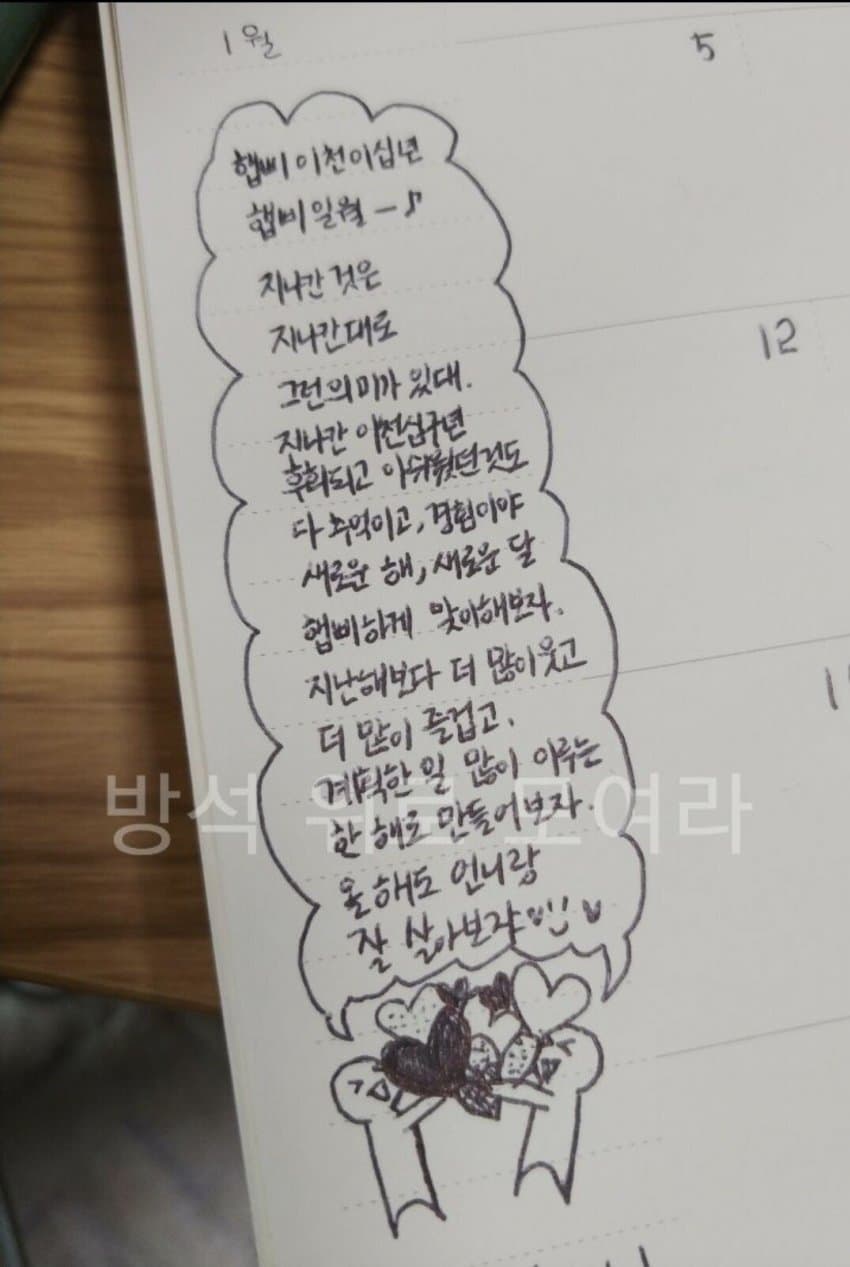 1월
5
햅삐 이천이십년
햅삐 일월 ~♪
지나간 것은
지나간대로
그런의미가 있대.
12
지나간 이천십구년
후회되고 아쉬웠던것도
다 추억이고, 경험이야
새로운 해, 새로운 달
햅삐하게 맞이해보자.
지난해보다 더 많이웃고
더 많이 즐겁고,
계획한 일 많이 이루는
한 해로 만들어보자.
올해도 언니랑
잘 살아보자
방석 위로 모여라